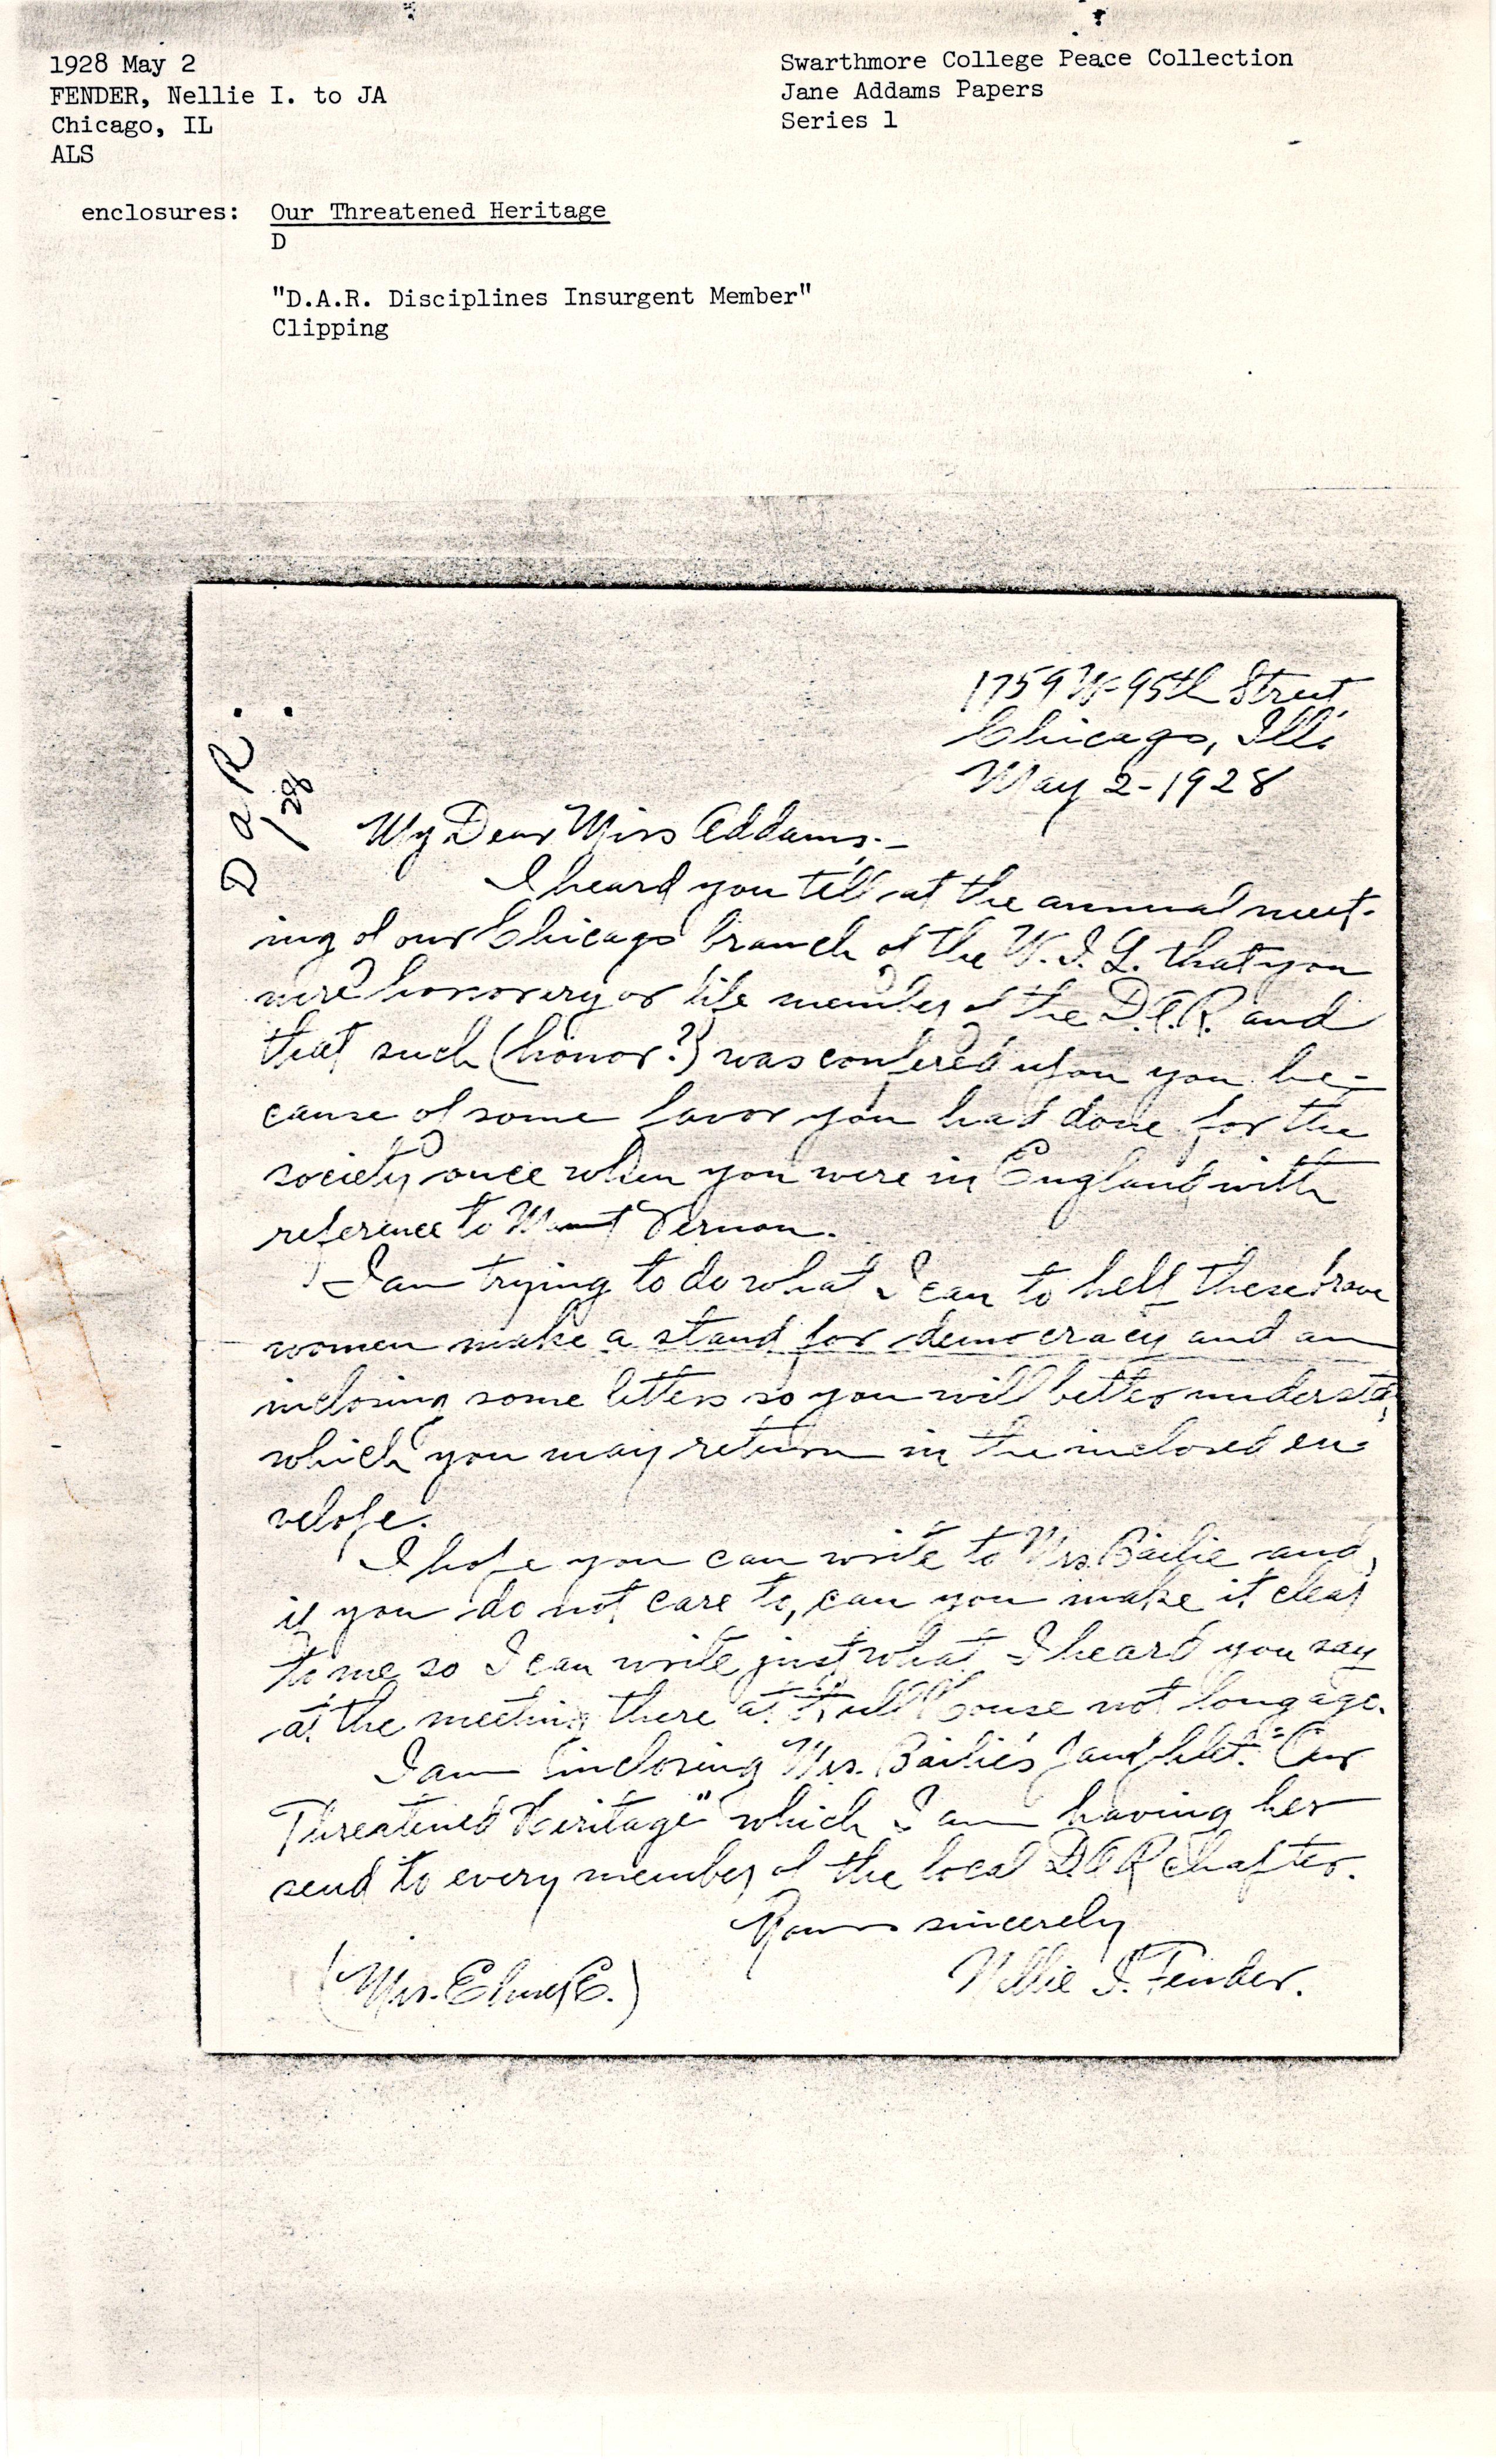 1928 May 2
FENDER, Nellie I. to JA
Chicago, IL
ALS
Swarthmore College Peace Collection
Jane Addams Papers
Series 1
enclosures: Our Threatened Heritage
D
"D.A.R. Disciplines Insurgent Member"
Clipping
D.A.R.
1928
1759 W-95th Street
Chicago, Ills
May 2-1928
My Dear Miss Addams:-
I heard you tell at the annual meet-
ing of our Chicago branch of the W.I.L. that you
were honorery or life member of the D.A.R. and
that such (honor?) was confered upon you be-
cause of some favor you had done for the
society once when you were in England with
reference to Mount Vernon.
I am trying to do what I can to help these brave
women make a stand for democracy and am
inclosing some letters so you will better understa
which you may return in the inclosed en-
velope.
I hope you can write to Mrs. Bailie and,
if you do not care to, can you make it clear
to me so I can write just what I heard you say
at the meeting there at Hull House not long ago.
I am inclosing Mrs. Bailie's pamphlet. "Our
Threatened Heritage" which I am having her
send to every member of the local D.A.R chapter.
Yours sincerely
Nellie I. Fender.
(Mrs. Elmer E.)